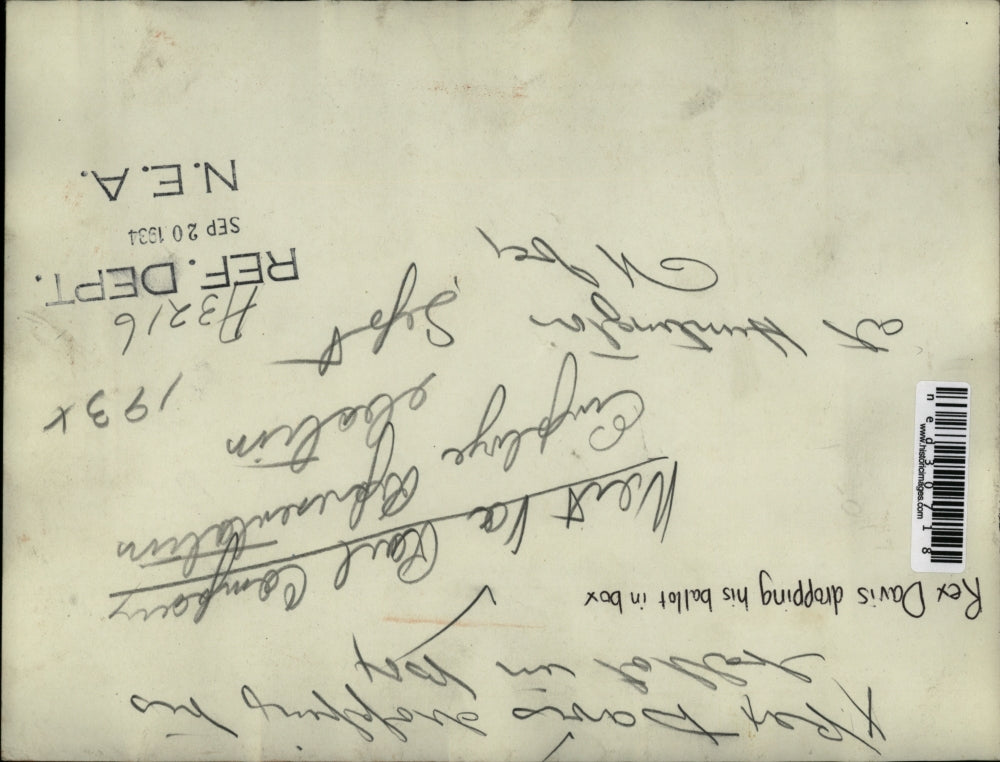 Rex Davis dropping his
ballot in box
Rex Davis dropping his ballot in box
n e d 3 0 7 1 8
www.historicimages.com
West Va Rail Company
Employe Representation
election
at Huntington
W Va,
Sept
193x
A3216
REF. DEPT.
SEP 20 1934
N.E.A.